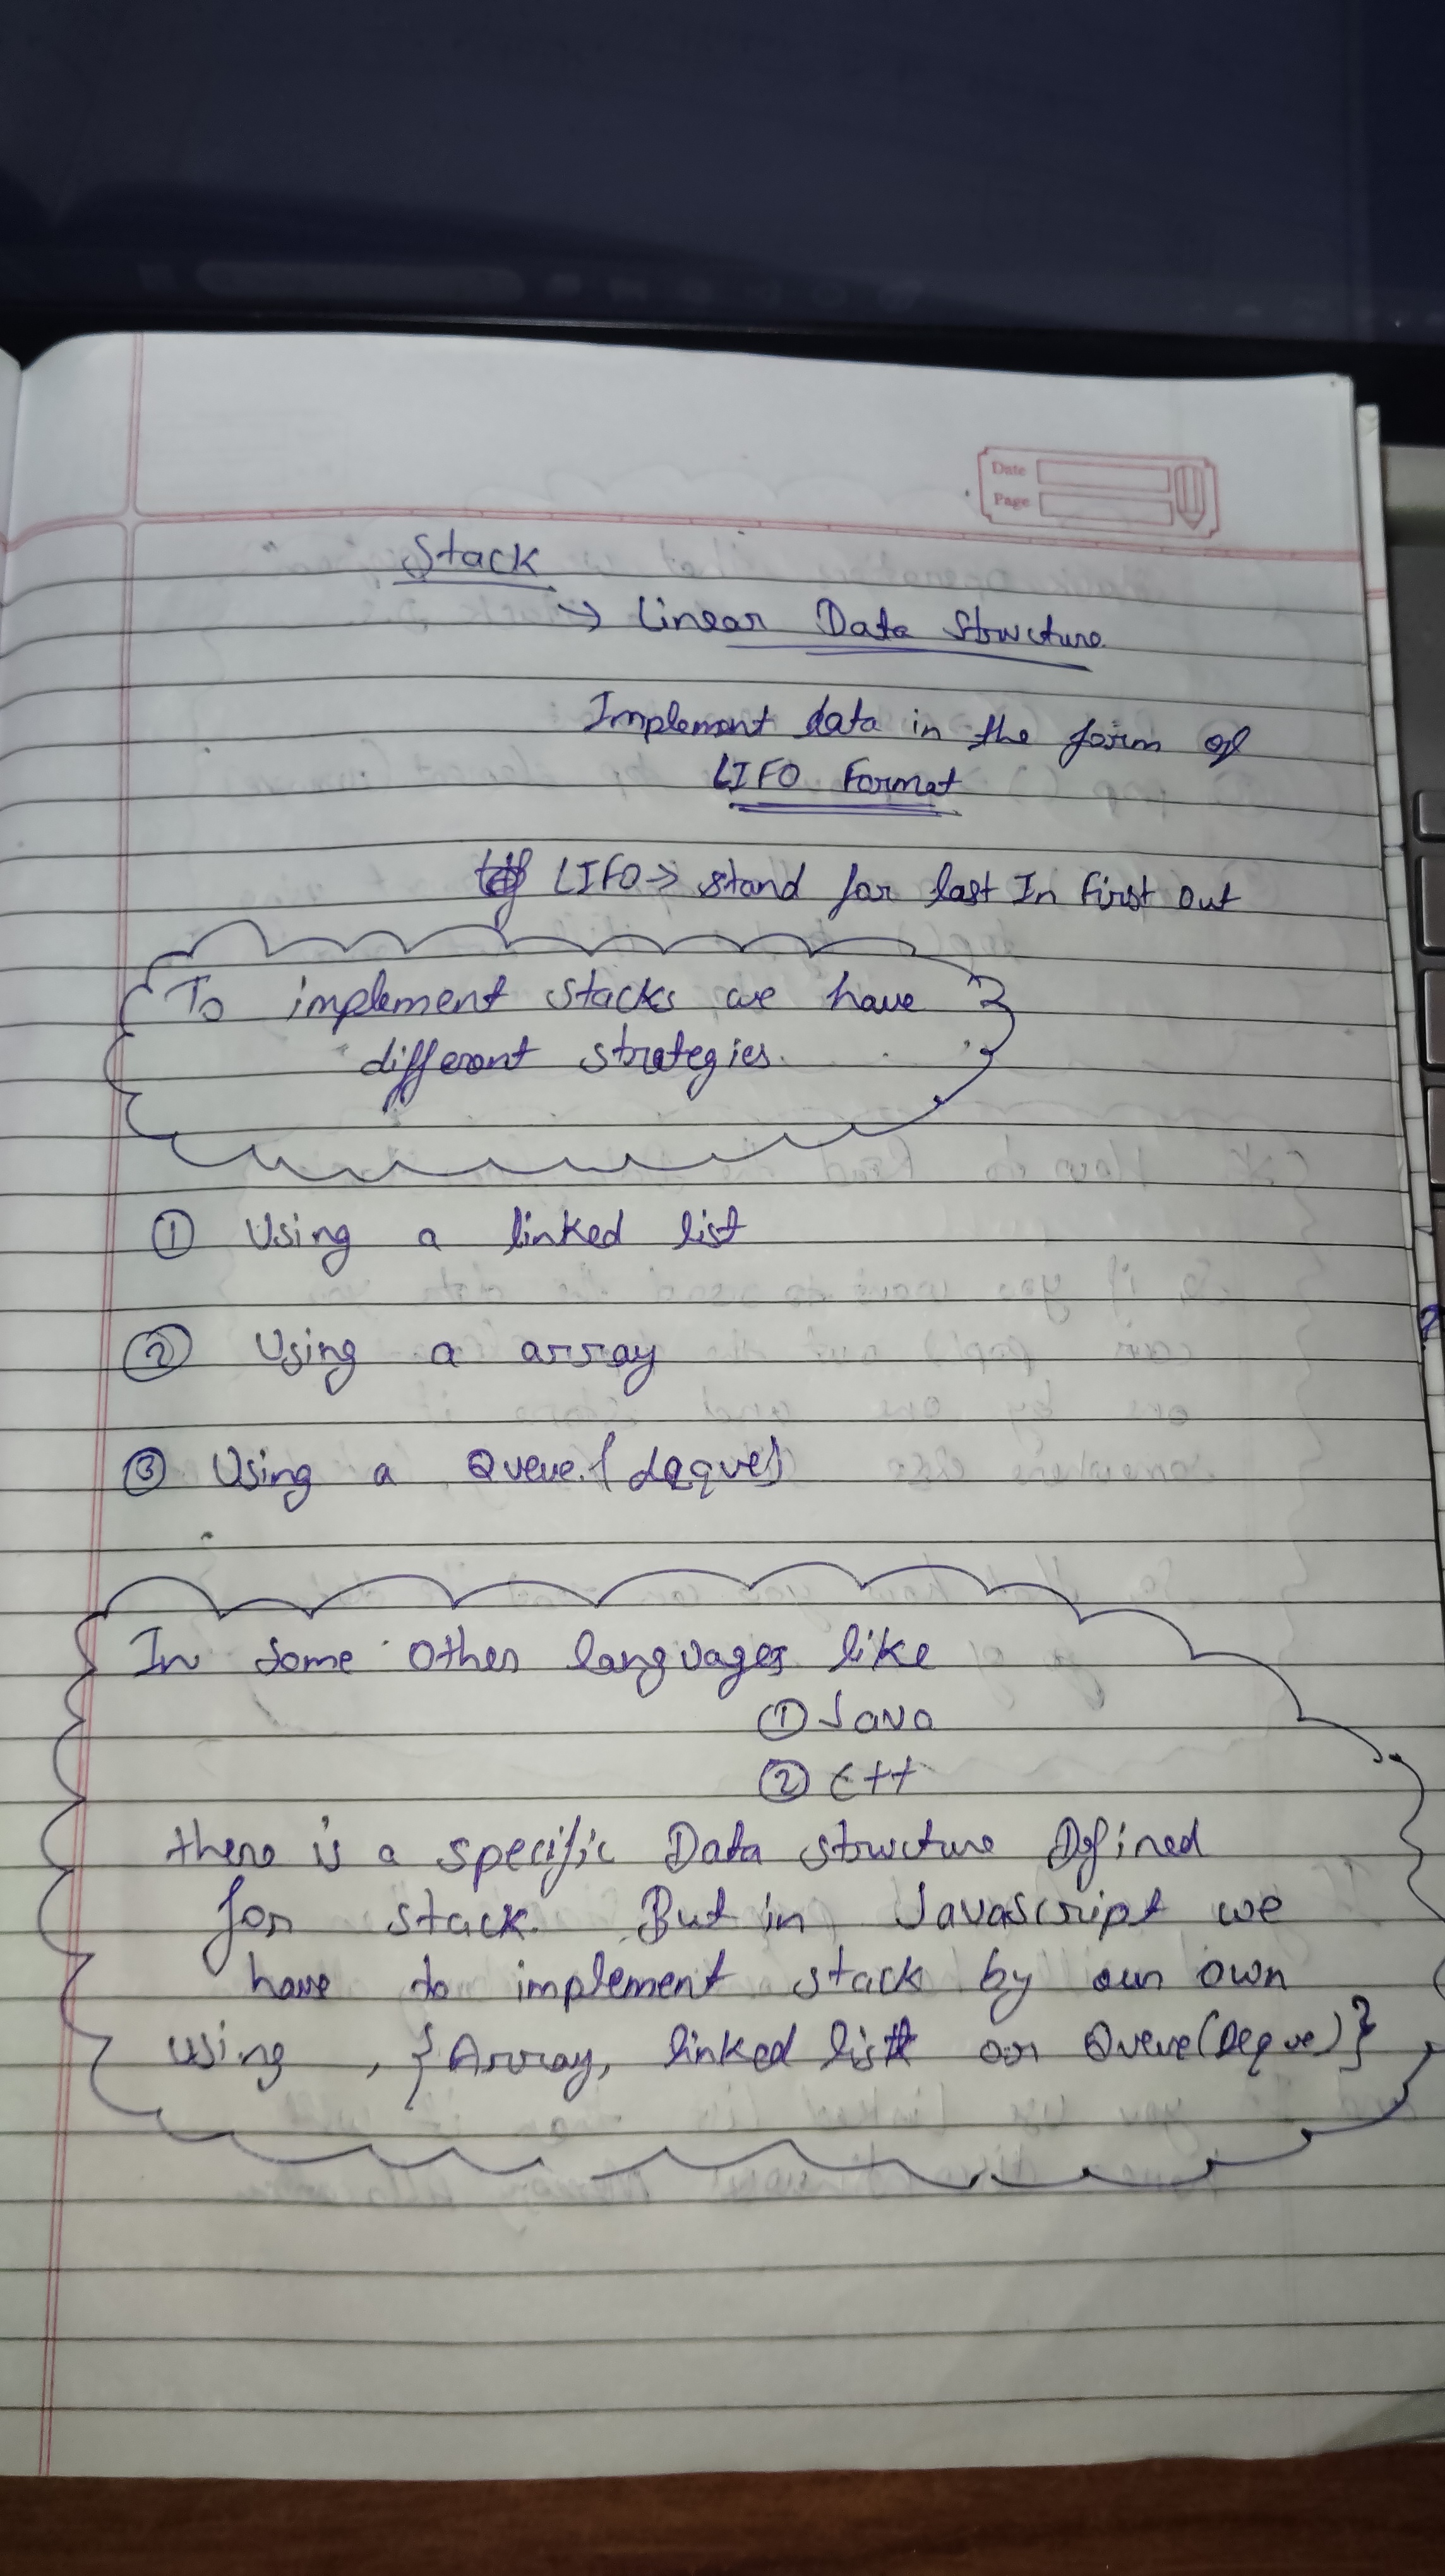 Date
Page
Stack
→ Linear Data Structure
Implement data in the form of
LIFO Format
LIFO → stand for last In First Out
To implement stacks we have
different strategies.
① Using a linked list
② Using a array
③ Using a Queue. (deque)
In some other languages like
① Java
② C++
there is a specific Data structure Defined
for stack. But in Javascript we
have to implement stack by our own
using , {Array, linked list or Queue(Deque)}